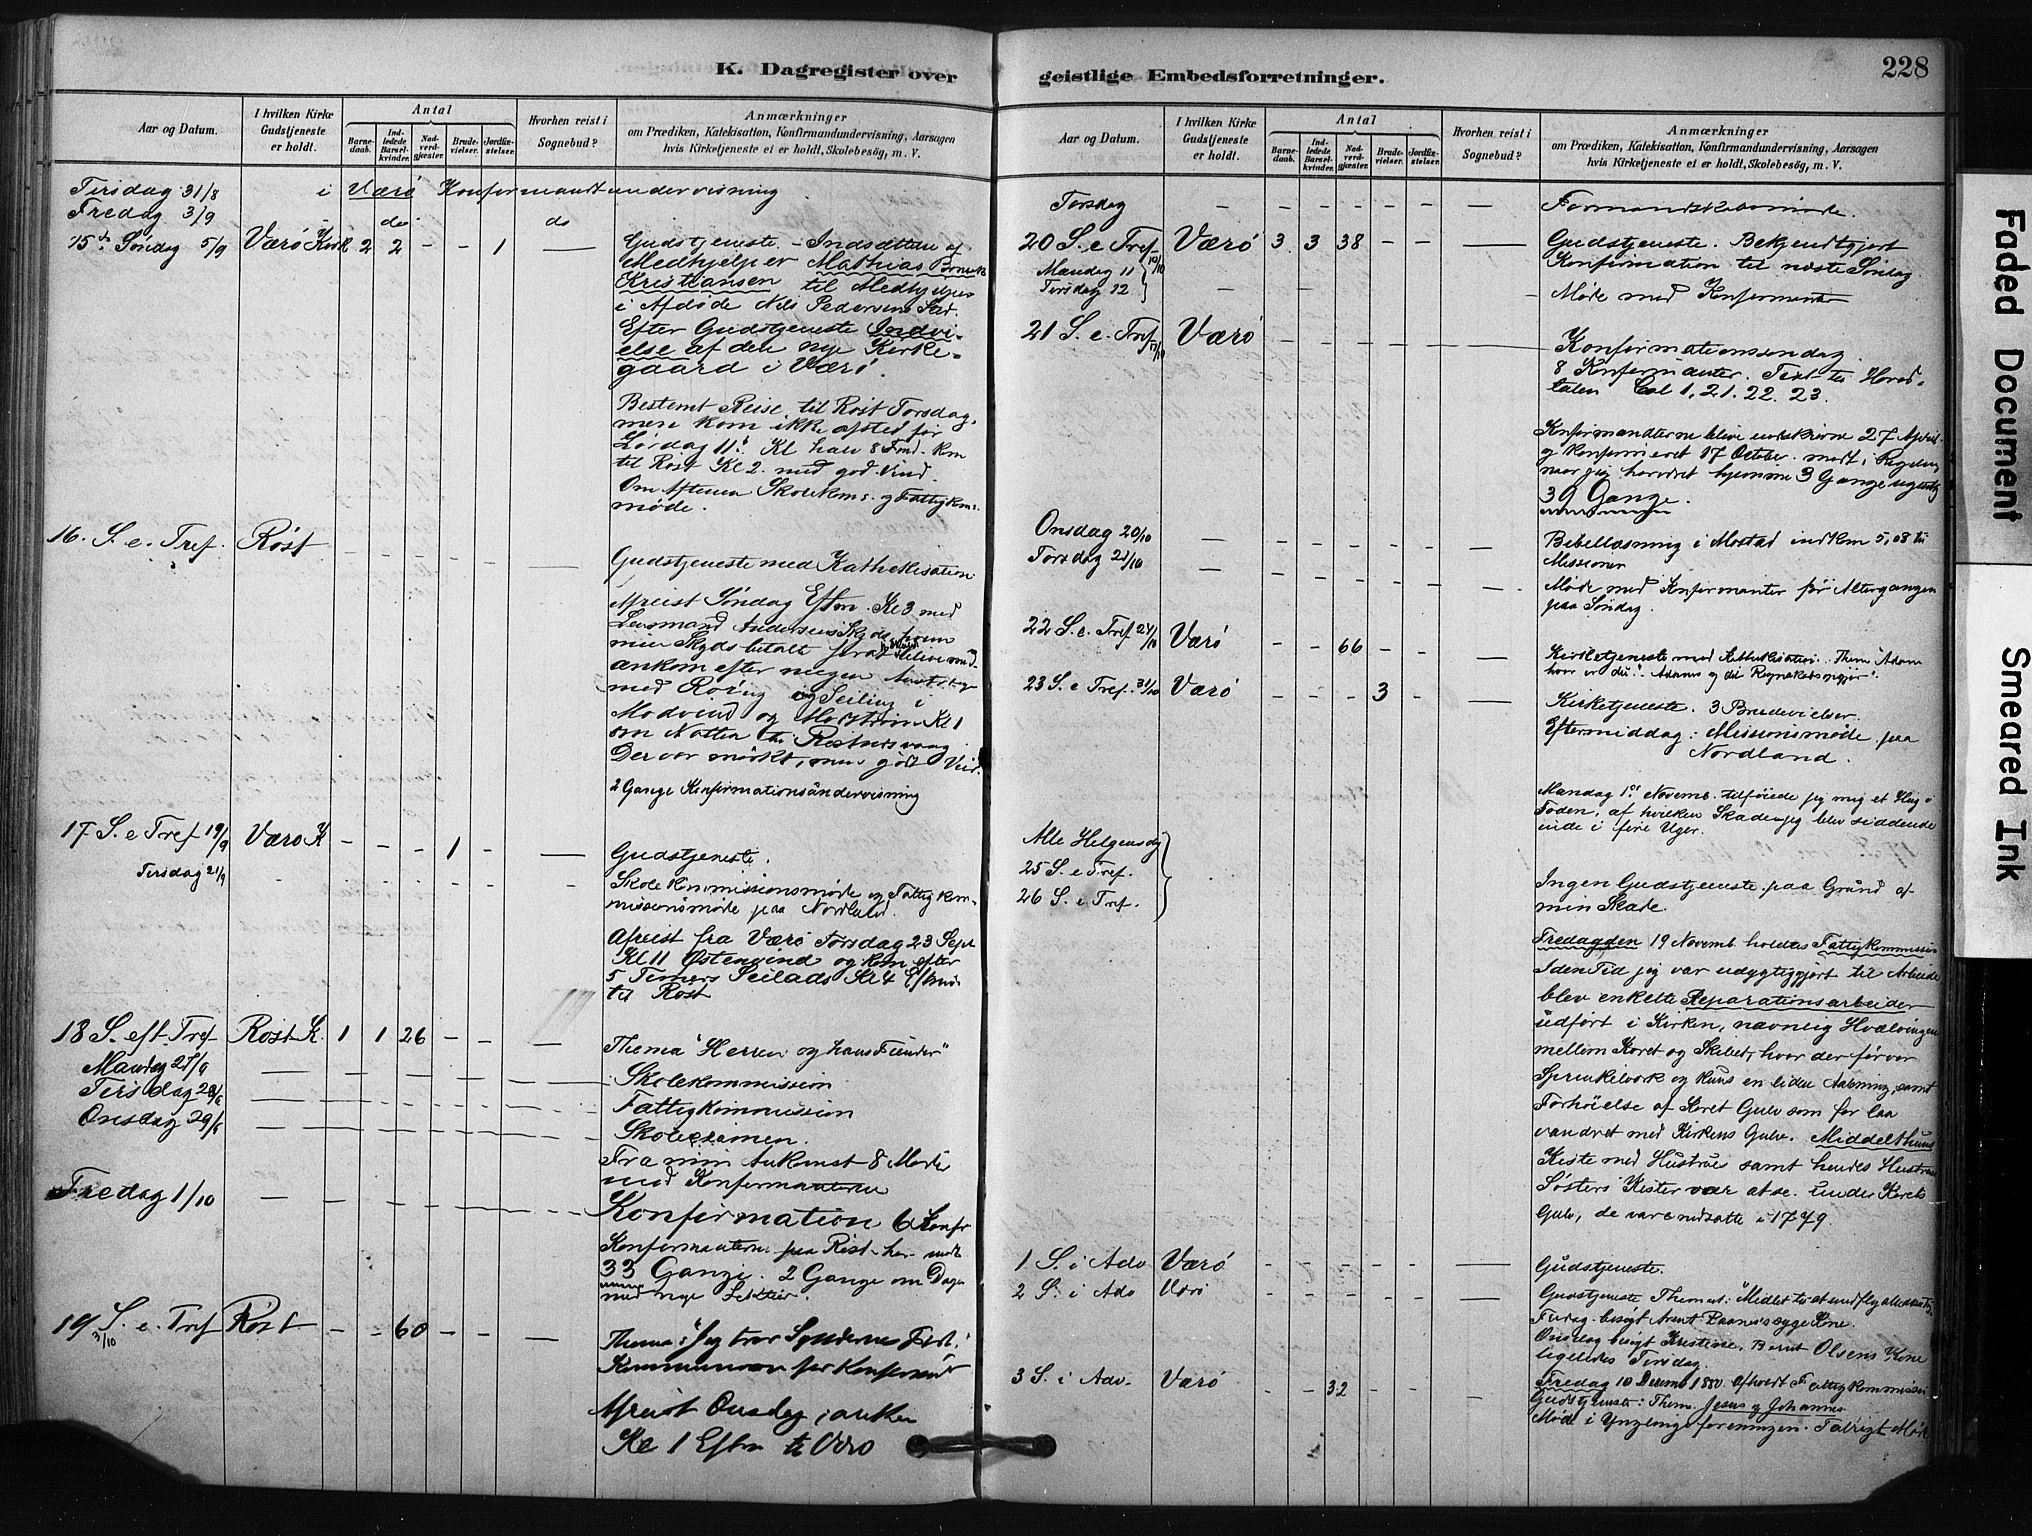 K. Dagregister over
Aar og Datum.
I hvilken Kirke Gudstjeneste er holdt.
Antal
Barnedaab.
Indledede Barselkvinder.
Nadverdgjester.
Brudevielser.
Jordfæstelser.
Hvorhen reist i Sognebud?
Anmærkninger
om Prædiken, Katekisation, Konfirmandundervisning, Aarsagen
hvis Kirketjeneste ei er holdt, Skolebesøg, m. V.
Tirsdag 31/8 i Værø Konfirmandtundervisning
Fredag 3/9 do do
15de Søndag 5/9 Værø Kirk 2 2 - - 1 — Gudstjeneste. - Indsættelse af
Medhjelper Mathias
Kristiansen til Medhjelper
i Afdøde Nils Pedersens Sted.
Efter Gudstjeneste Indvi-
else af den nye Kirke-
gaard i Værø.
Bestemt Reise til Røst Torsdag,
men kom ikke afsted før
Lørdag 11te Kl halv 8 Fmd. kom
til Røst Kl 2. med god Vind.
Om Aftenen Skolekoms. og Fattigkoms.
møde.
16. S. e. Tref. Røst - - - - - — Gudstjeneste med Kathekisation
Afreist Søndag Eftm. Kl 3 med
Lensmand Andersens Skyds hvem
min Skyds betalt
ankom efter megen
med Roing og Seiling i
Modvind og Modstrøm Kl 1
om Natten til Røstnesvaag
Der var mørkt, men godt Veir.
2 Gange Konfirmationsundervisning
17 S. e Tref 19/9 Værø K - - - 1 - — Gudstjeneste.
Tirsdag 21/9 Skolekommissionsmøde og Fattigkom-
missionsmøde paa Nordland.
Afreist fra Værø Torsdag 23 Sept
Kl 11 Østenvind og kom efter
5 Timers Seilads Kl 4 Eftmd
til Røst
18 S. eft. Tref Røst K. 1 1 26 - - — Thema "Herren og hans Fiender"
Mandag 27/9 — Skolekommission
Tirsdag 28/9 — Fattigkommission
Onsdag 29/9 — Skoleexamen.
Fra min Ankomst 8 Møde
med Konfirmanterne
Fredag 1/10 — Konfirmation 6 Konfr
Konfirmanterne paa Røst har mødt
33 Gange. 2 Gange om Dagen
med nye Lektier.
19 S. e. Tref 3/10 Røst - - 60 - - Thema: "Jeg tror Syndernes Forl."
Kommunion for Konfirmd
Afreist Onsdag
Kl 1 Eftm til Værø
geistlige Embedsforretninger.
228
Aar og Datum.
I hvilken Kirke Gudstjeneste er holdt.
Antal
Barnedaab.
Indledede Barselkvinder.
Nadverdgjester.
Brudevielser.
Jordfæstelser.
Hvorhen reist i Sognebud?
Anmærkninger
om Prædiken, Katekisation, Konfirmandundervisning, Aarsagen
hvis Kirketjeneste ei er holdt, Skolebesøg, m. V.
Torsdag — - - - - - — Formandskabsmøde.
20 S. e Tref 10/10 Værø 3 3 38 - - — Gudstjeneste. Bekjendtgjort
Konfirmation til næste Søndag.
Mandag 11
Tirsdag 12 } — Møde med Konfirmanter
21 S. e. Tref 17/10 Værø - - - - - — Konfirmationssøndag.
8 Konfirmanter. Text til Hoved-
talen Col 1, 21. 22. 23.
Konfirmandterne bleve indskrevne 27 April
og konfirmeret 17 October. mødt i Regelen
naar jeg har været hjemme 3 Gange ugentlig
39 Gange.
Onsdag 20/10 — Bibellæsning i Mostad indkom 5,08 til
Missionen
Torsdag 21/10 — Møde med Konfirmanter før Altergangen
paa Søndag.
22 S. e. Tref 24/10 Værø - - 66 - - — Kirketjeneste med Kathekisation. Them "Adam
hvor er du". Adams og dit Regnskabsopgjør".
23 S. e Tref. 31/10 Værø - - - 3 - — Kirketjeneste. 3 Brudevielser.
Eftermiddag: Missionsmøde paa
Nordland.
Mandag 1ste Novemb. tilføiede jeg mig et Hug i
Foden, af hvilken Skade jeg blev siddende
inde i fire Uger.
Alle Helgensdg
25 S. e Tref.
26 S. e Tref. } Ingen Gudstjeneste paa Grund af
min Skade.
Fredag den 19 Novemb. holdtes Fattigkommission
I den Tid jeg var udygtiggjort til Arbeide
blev enkelte Reparationsarbeider
udført i Kirken, navnlig Hvælvingen
mellem Koret og Skibet, hvor der før var
Sprinkelværk og kuns en liden Aabning, samt
Forhøielse af Koret Gulv som før laa
vandret med Kirkens Gulv. Middelthuns
Kiste med Hustrues samt hendes Hustrues
Søsters Kister var at se under Korets
Gulv, de vare nedsatte i 1749.
1 S. i Adv Værø - - - - - — Gudstjeneste.
2 S. i Adv Værø Gudstjeneste Themat: "Midlet til at undfly
Fredag besøgt syge Kone.
Onsdag besøgt Kristine, Bernt Olsens Kone
ligeledes Torsdag.
Fredag 10 Decemb 1880. afholdt Fattigkommission
3 S. i Adv. Værø - - 32 - - - Gudstjeneste: Them. Jesus og Johannes
Møde i Ynglingeforeningen. Talrigt Møde
Faded Document
Smeared Ink